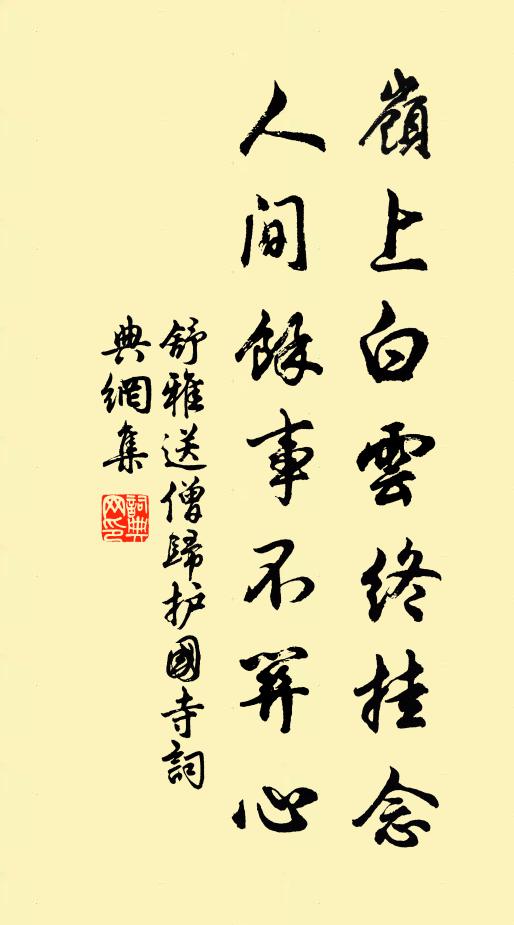 嶺上白雲終挂念
人間餘事不關心
舒雅送僧歸护國寺詞
典網集
詞典
网印